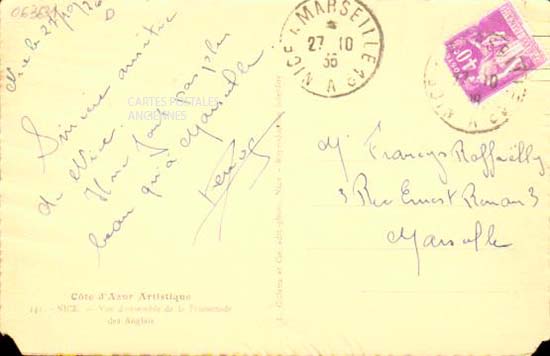 063631
Nice le 27/10/36
Sincère amitié
de Nice.
Il ne fait pas plus
beau qu'à Marseille
CARTES POSTALES
ANCIENNES
Côte d'Azur Artistique
141. - NICE. - Vue d'ensemble de la Promenade
des Anglais
NICE A MARSEILLE
27 - 10
36
40c
M. Francys Raffaëlly
3 Rue Ernest Renan 3
Marseille